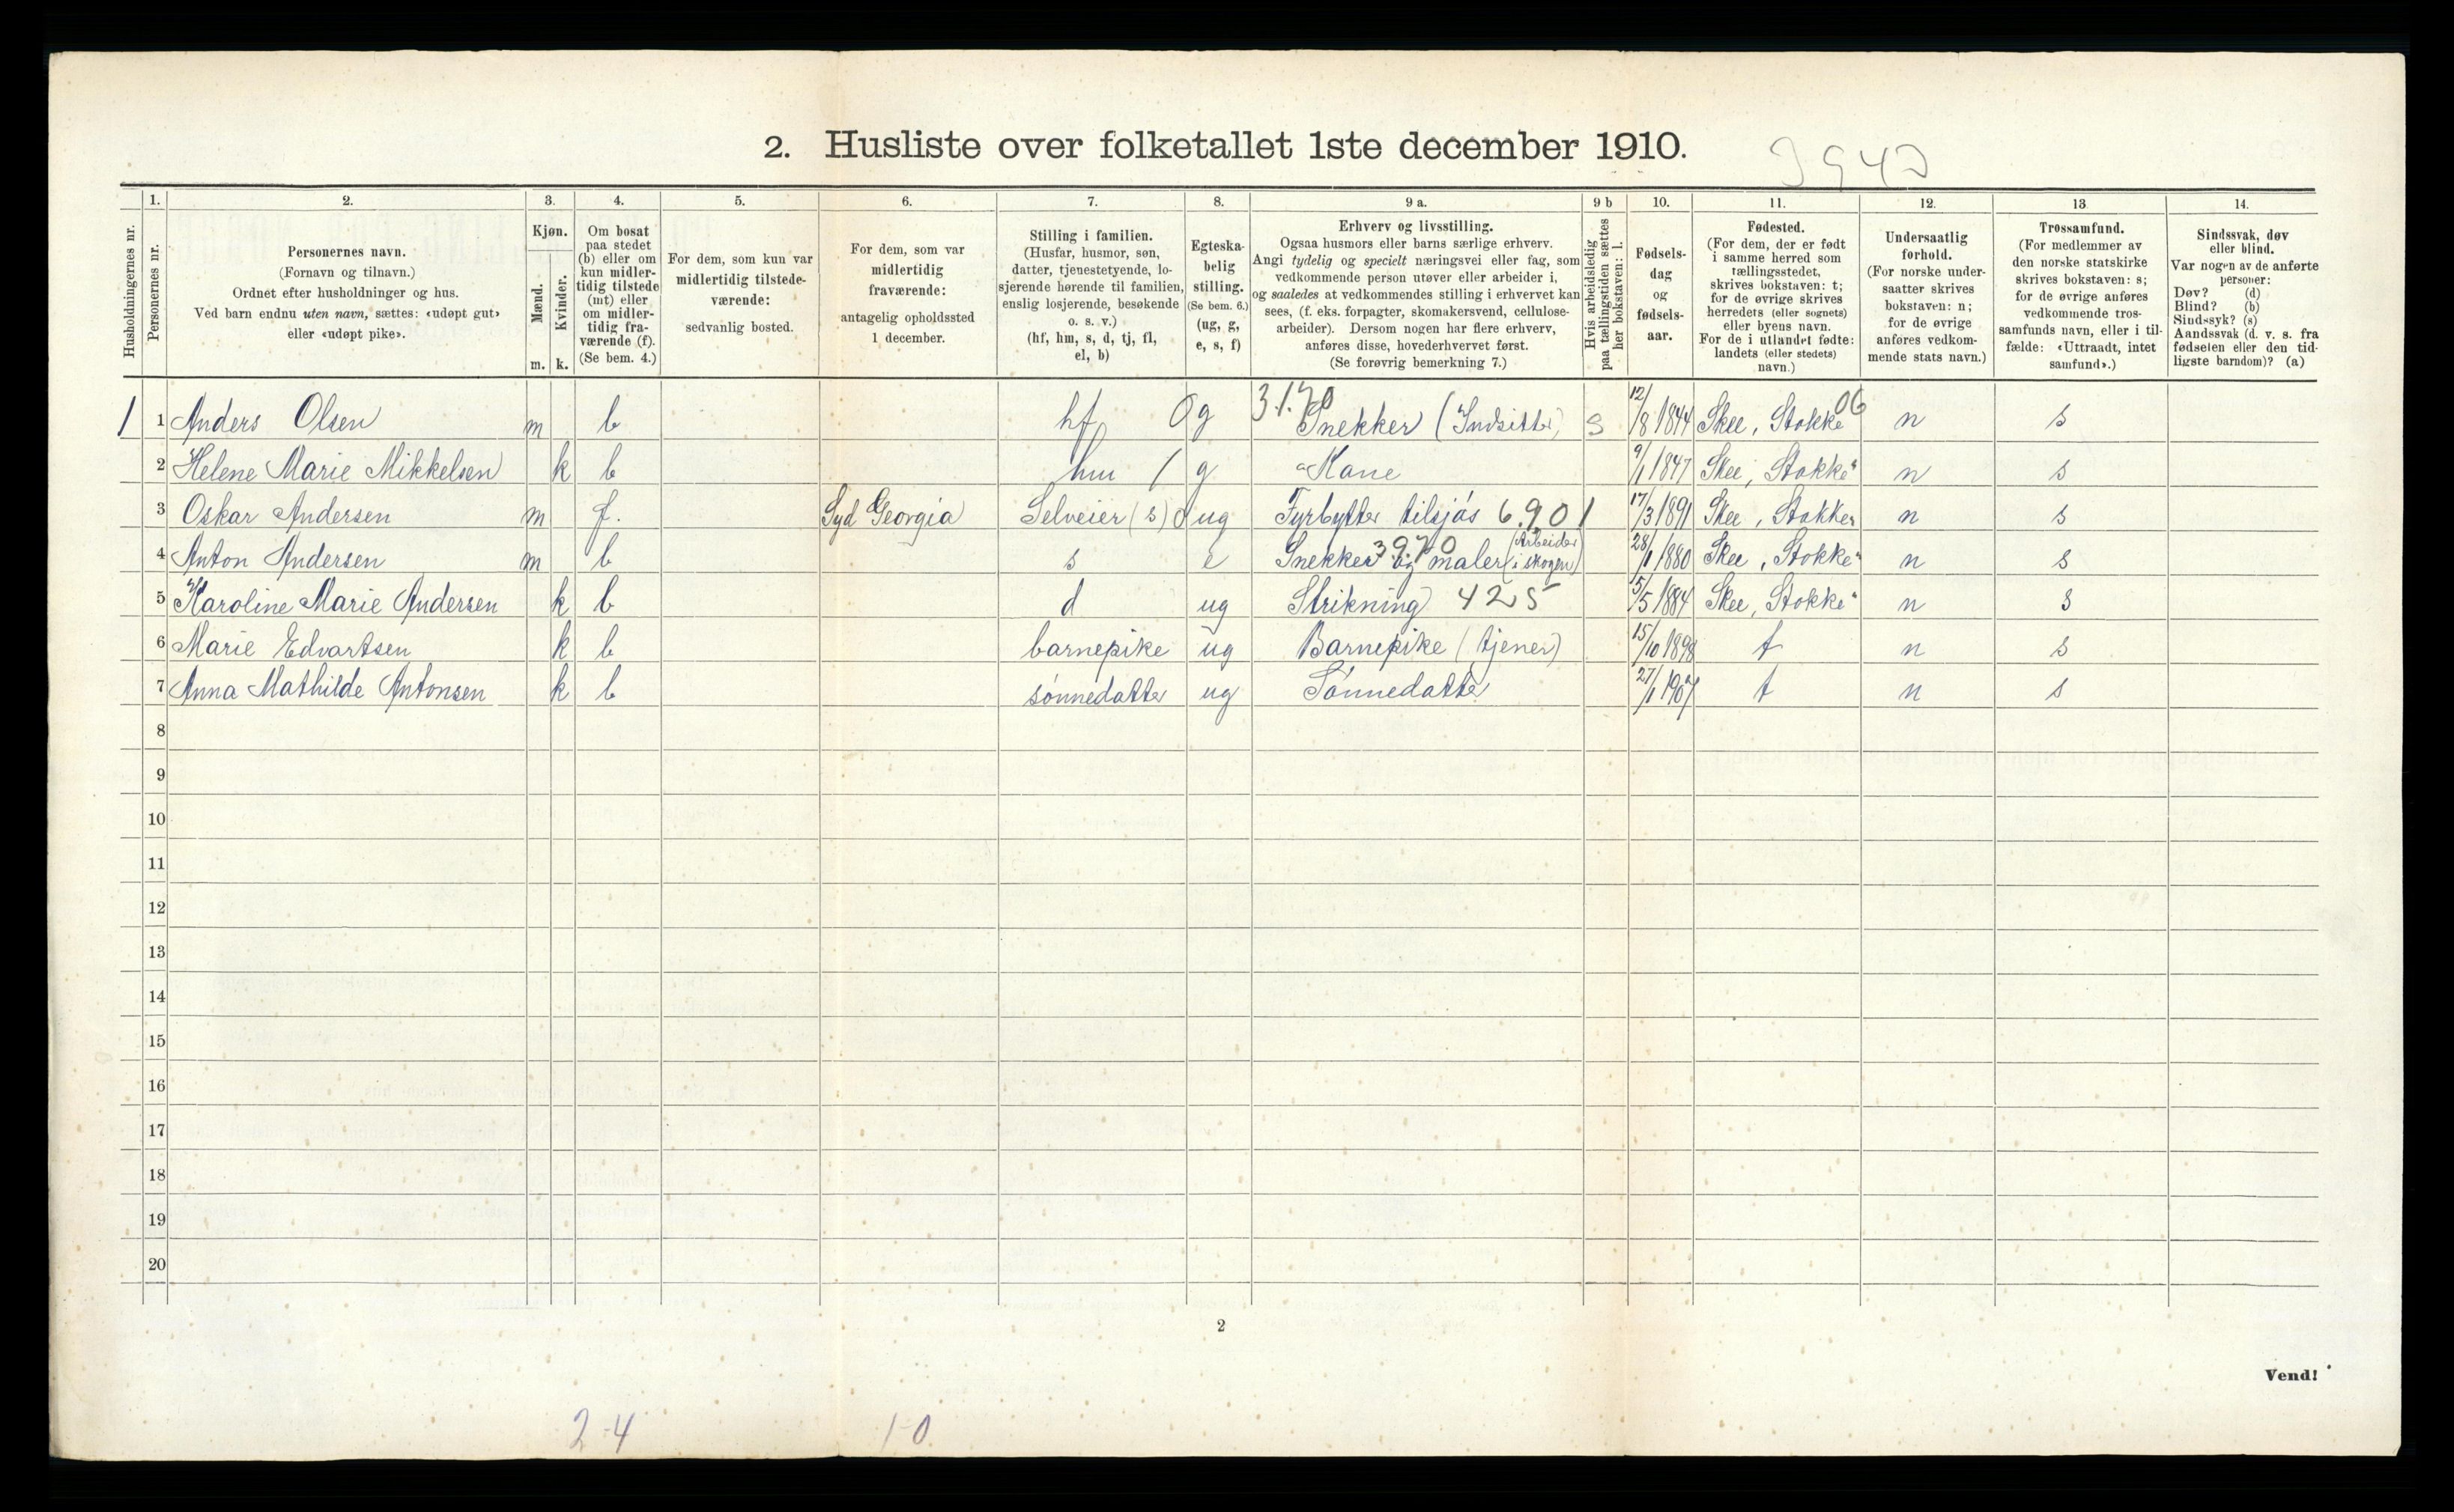 2. Husliste over folketallet 1ste december 1910.
Husholdningernes nr.
1.
Personernes nr.
2.
Personernes navn.
(Fornavn og tilnavn.)
Ordnet efter husholdninger og hus.
Ved barn endnu uten navn, sættes: «udøpt gut»
eller «udøpt pike».
3.
Kjøn.
Mænd.
Kvinder.
m. k.
4.
Om bosat
paa stedet
(b) eller om
kun midler-
tidig tilstede
(mt) eller
om midler-
tidig fra-
værende (f).
(Se bem. 4.)
5.
For dem, som kun var
midlertidig tilstede-
værende:
sedvanlig bosted.
6.
For dem, som var
midlertidig
fraværende:
antagelig opholdssted
1 december.
7.
Stilling i familien.
(Husfar, husmor, søn,
datter, tjenestetyende, lo-
sjerende hørende til familien,
enslig losjerende, besøkende
o. s. v.)
(hf, hm, s, d, tj, fl,
el, b)
8.
Egteska-
belig
stilling.
(Se bem. 6.)
(ug, g,
e, s, f)
9 a.
Erhverv og livsstilling.
Ogsaa husmors eller barns særlige erhverv.
Angi tydelig og specielt næringsvei eller fag, som
vedkommende person utøver eller arbeider i,
og saaledes at vedkommendes stilling i erhvervet kan
sees, (f. eks. forpagter, skomakersvend, cellulose-
arbeider). Dersom nogen har flere erhverv,
anføres disse, hovederhvervet først.
(Se forøvrig bemerkning 7.)
9 b
Hvis arbeidsledig
paa tællingstiden sættes
her bokstaven: l.
10.
Fødsels-
dag
og
fødsels-
aar.
11.
Fødested.
(For dem, der er født
i samme herred som
tællingsstedet,
skrives bokstaven: t;
for de øvrige skrives
herredets (eller sognets)
eller byens navn.
For de i utlandet fødte:
landets (eller stedets)
navn.)
12.
Undersaatlig
forhold.
(For norske under-
saatter skrives
bokstaven: n;
for de øvrige
anføres vedkom-
mende stats navn.)
13
Trossamfund.
(For medlemmer av
den norske statskirke
skrives bokstaven: s;
for de øvrige anføres
vedkommende tros-
samfunds navn, eller i til-
fælde: «Uttraadt, intet
samfund».)
14.
Sindssvak, døv
eller blind.
Var nogen av de anførte
personer:
Døv? (d)
Blind? (b)
Sindssyk? (s)
Aandssvak (d. v. s. fra
fødselen eller den tid-
ligste barndom)? (a)
1 1 Anders Olsen m b hf 0 g 3.1.70 Snekker (Indsitter) s 12/8 1844 Skee, Stokke 06 n s
2 Helene Marie Mikkelsen k b hm 1 g Kone 9/1 1847 Skee, Stokke n s
3 Oskar Andersen m f. Syd Georgia Selveier (s) 0 ug Fyrbytter tilsjøs 6.901 17/3 1891 Skee, Stokke n s
4 Anton Andersen m b s e Snekker og maler (Arbeider i skogen) 3970 28/1 1880 Skee, Stokke n s
5 Karoline Marie Andersen k b d ug Strikning 425 5/5 1884 Skee, Stokke n s
6 Marie Edvartsen k b barnepike ug Barnepike (tjener) 15/10 1898 t n s
7 Anna Mathilde Antonsen k b sønnedatter ug Sønnedatter 27/1 1907 t n s
8
9
10
11
12
13
14
15
16
17
18
19
20
2
Vend!
2-4 1-0